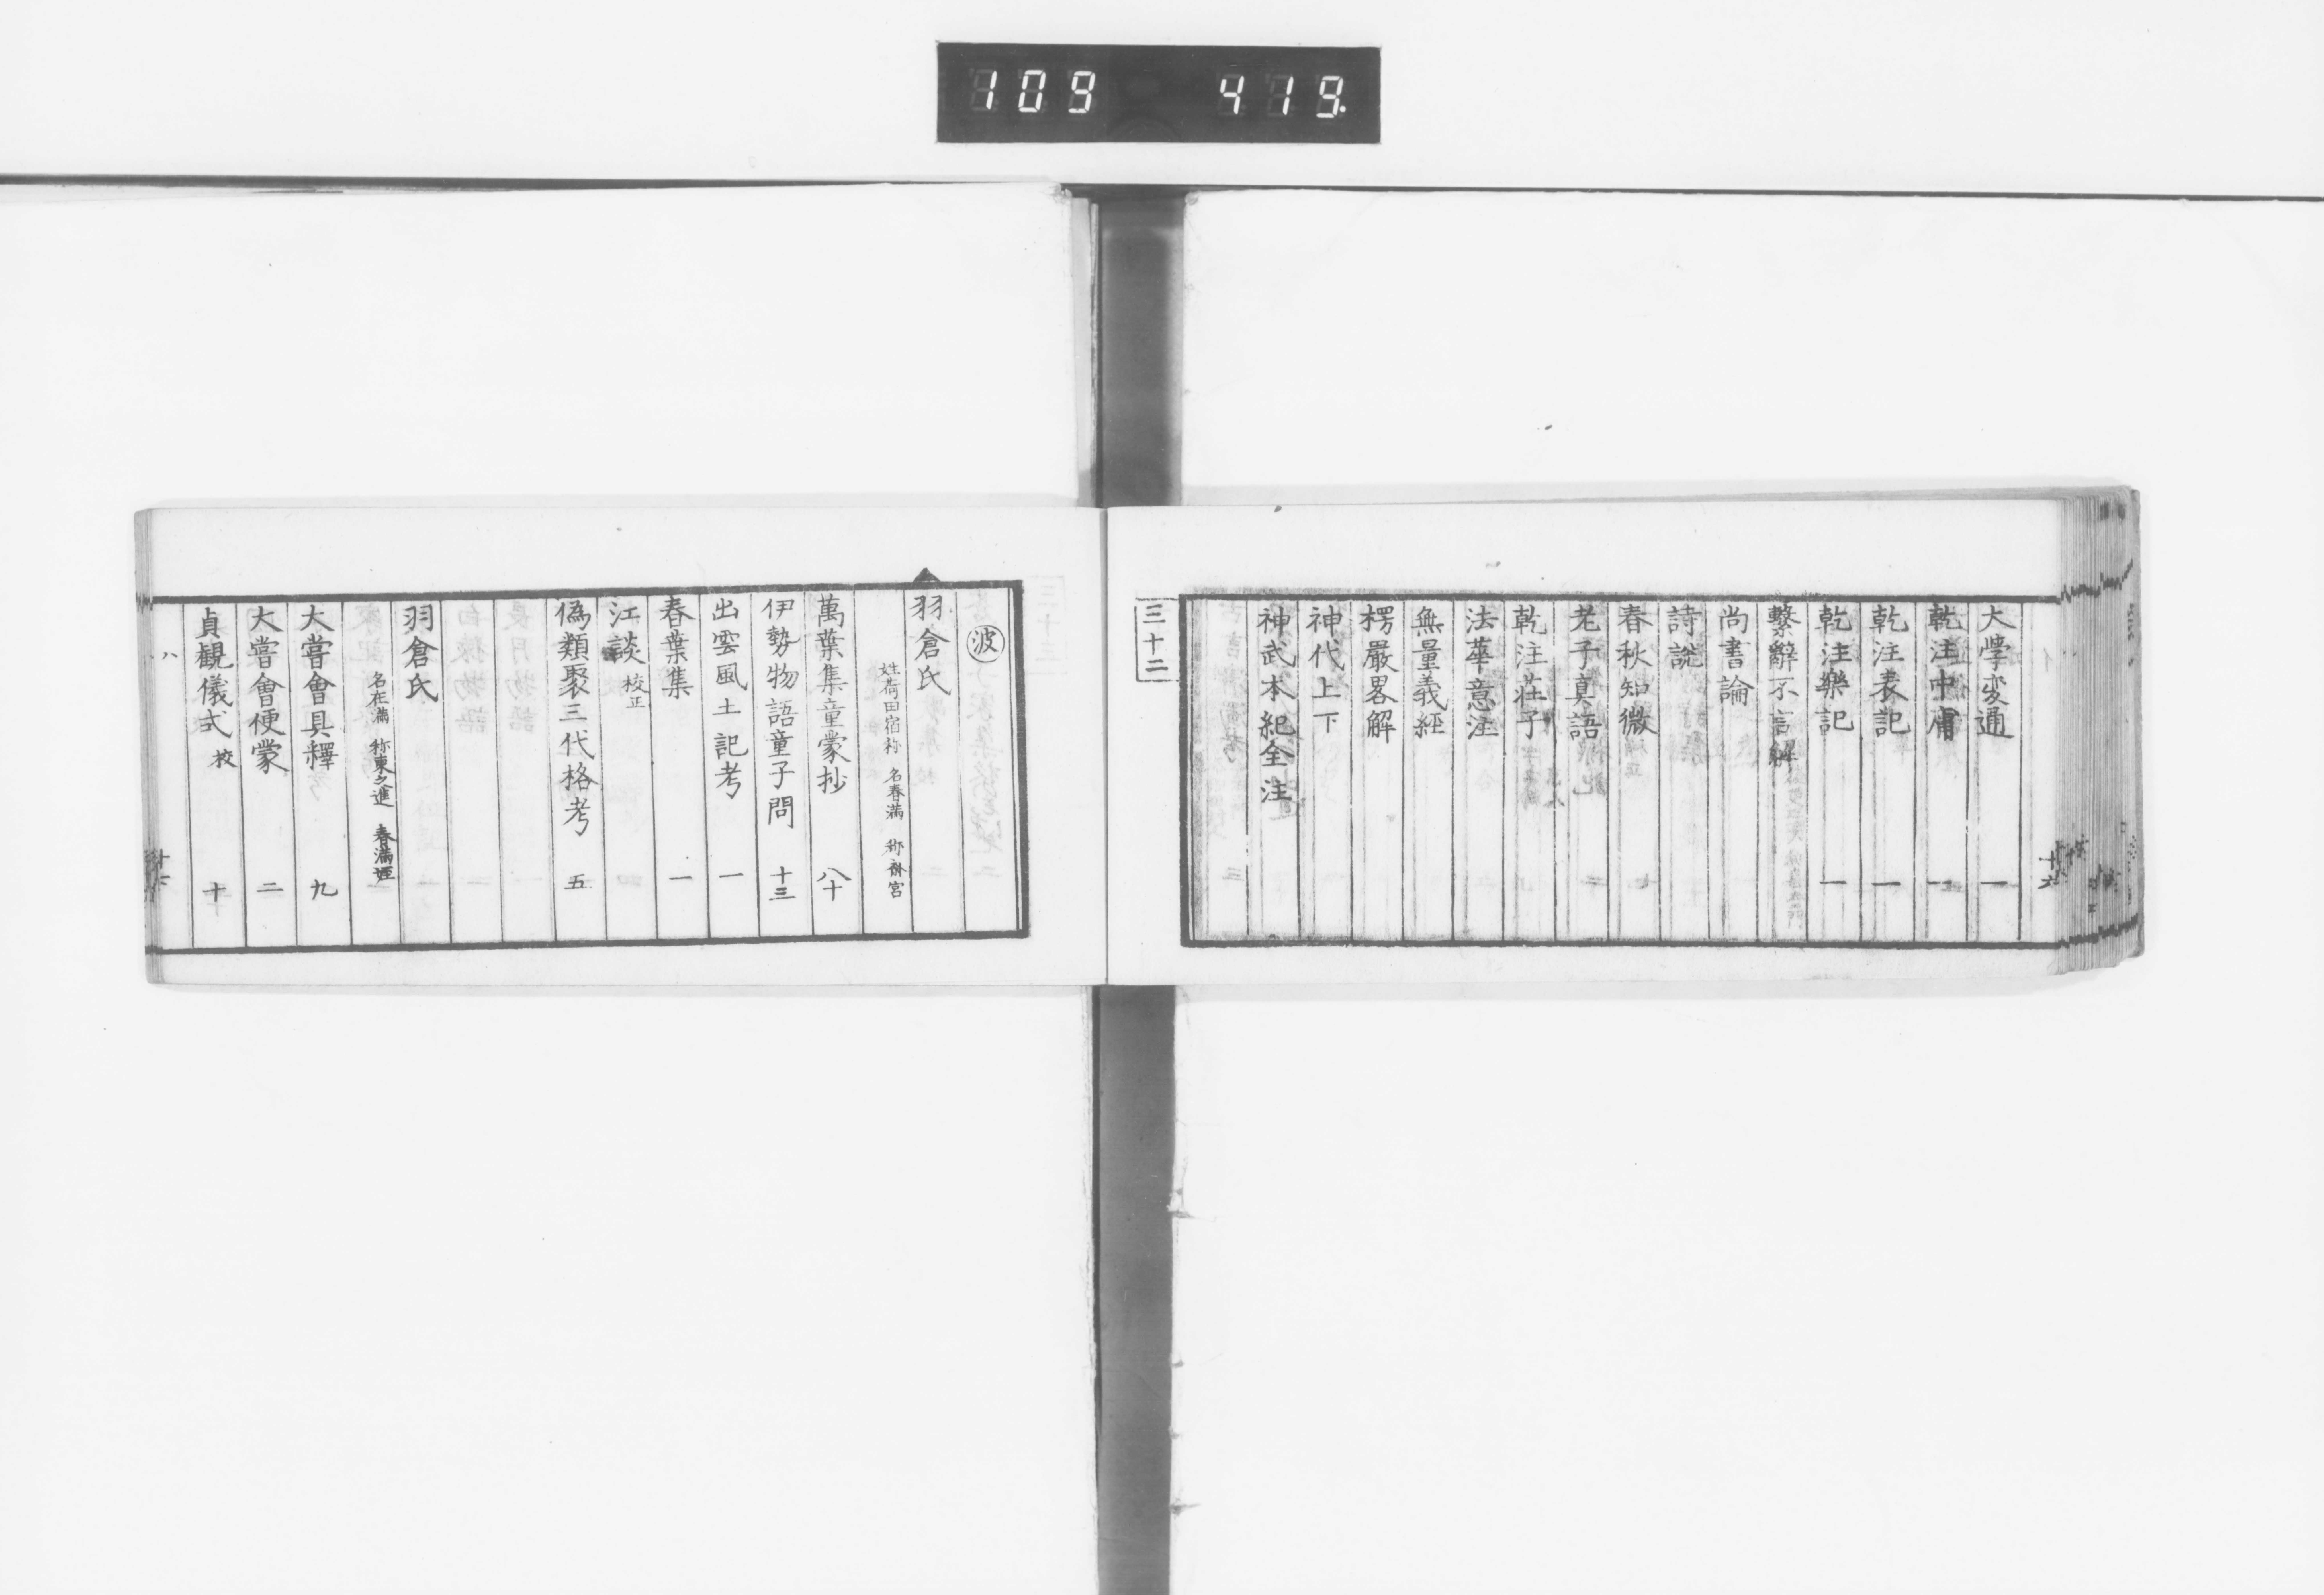 109 419
大學変通 一
乾注中庸 一
乾注表記 一
乾注樂記 一
繫辭不言解
尚書論
詩説
春秋知微
老子真語
乾注莊子
法華意注
無量義經
楞嚴畧解
神代上下
神武本紀全注
三十二
十六
波
羽倉氏
姓荷田宿祢 名春満 称齋宮
萬葉集童蒙抄 八十
伊勢物語童子問 十三
出雲風土記考 一
春葉集 一
江談 校正
偽類聚三代格考 五
羽倉氏
名在満 称東之進 春満姪
大嘗會具釋 九
大嘗會便蒙 二
貞観儀式 校 十
ハ